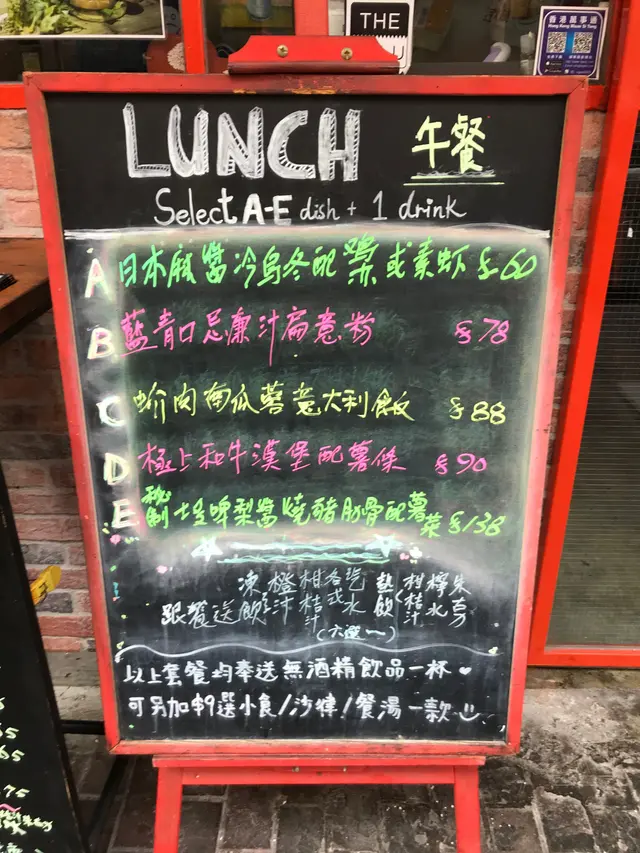 THE
香港萬事通
LUNCH 午餐
Select A-E dish + 1 drink
A 日本麻醬冷烏冬配 或素虾 $60
B 藍青口忌廉汁扁意粉 $78
C 蚧肉南瓜蓉意大利飯 $88
D 極上和牛漢堡配薯條 $90
E 秘制士多啤梨醬燒豬肋骨配薯菜 $138
跟餐送 凍飲 橙汁 柑桔汁 各式汽水 熱飲 柑桔汁 檸水 朱古力
(六選一)
以上套餐均奉送無酒精飲品一杯
可另加$9選小食/沙律/餐湯一款